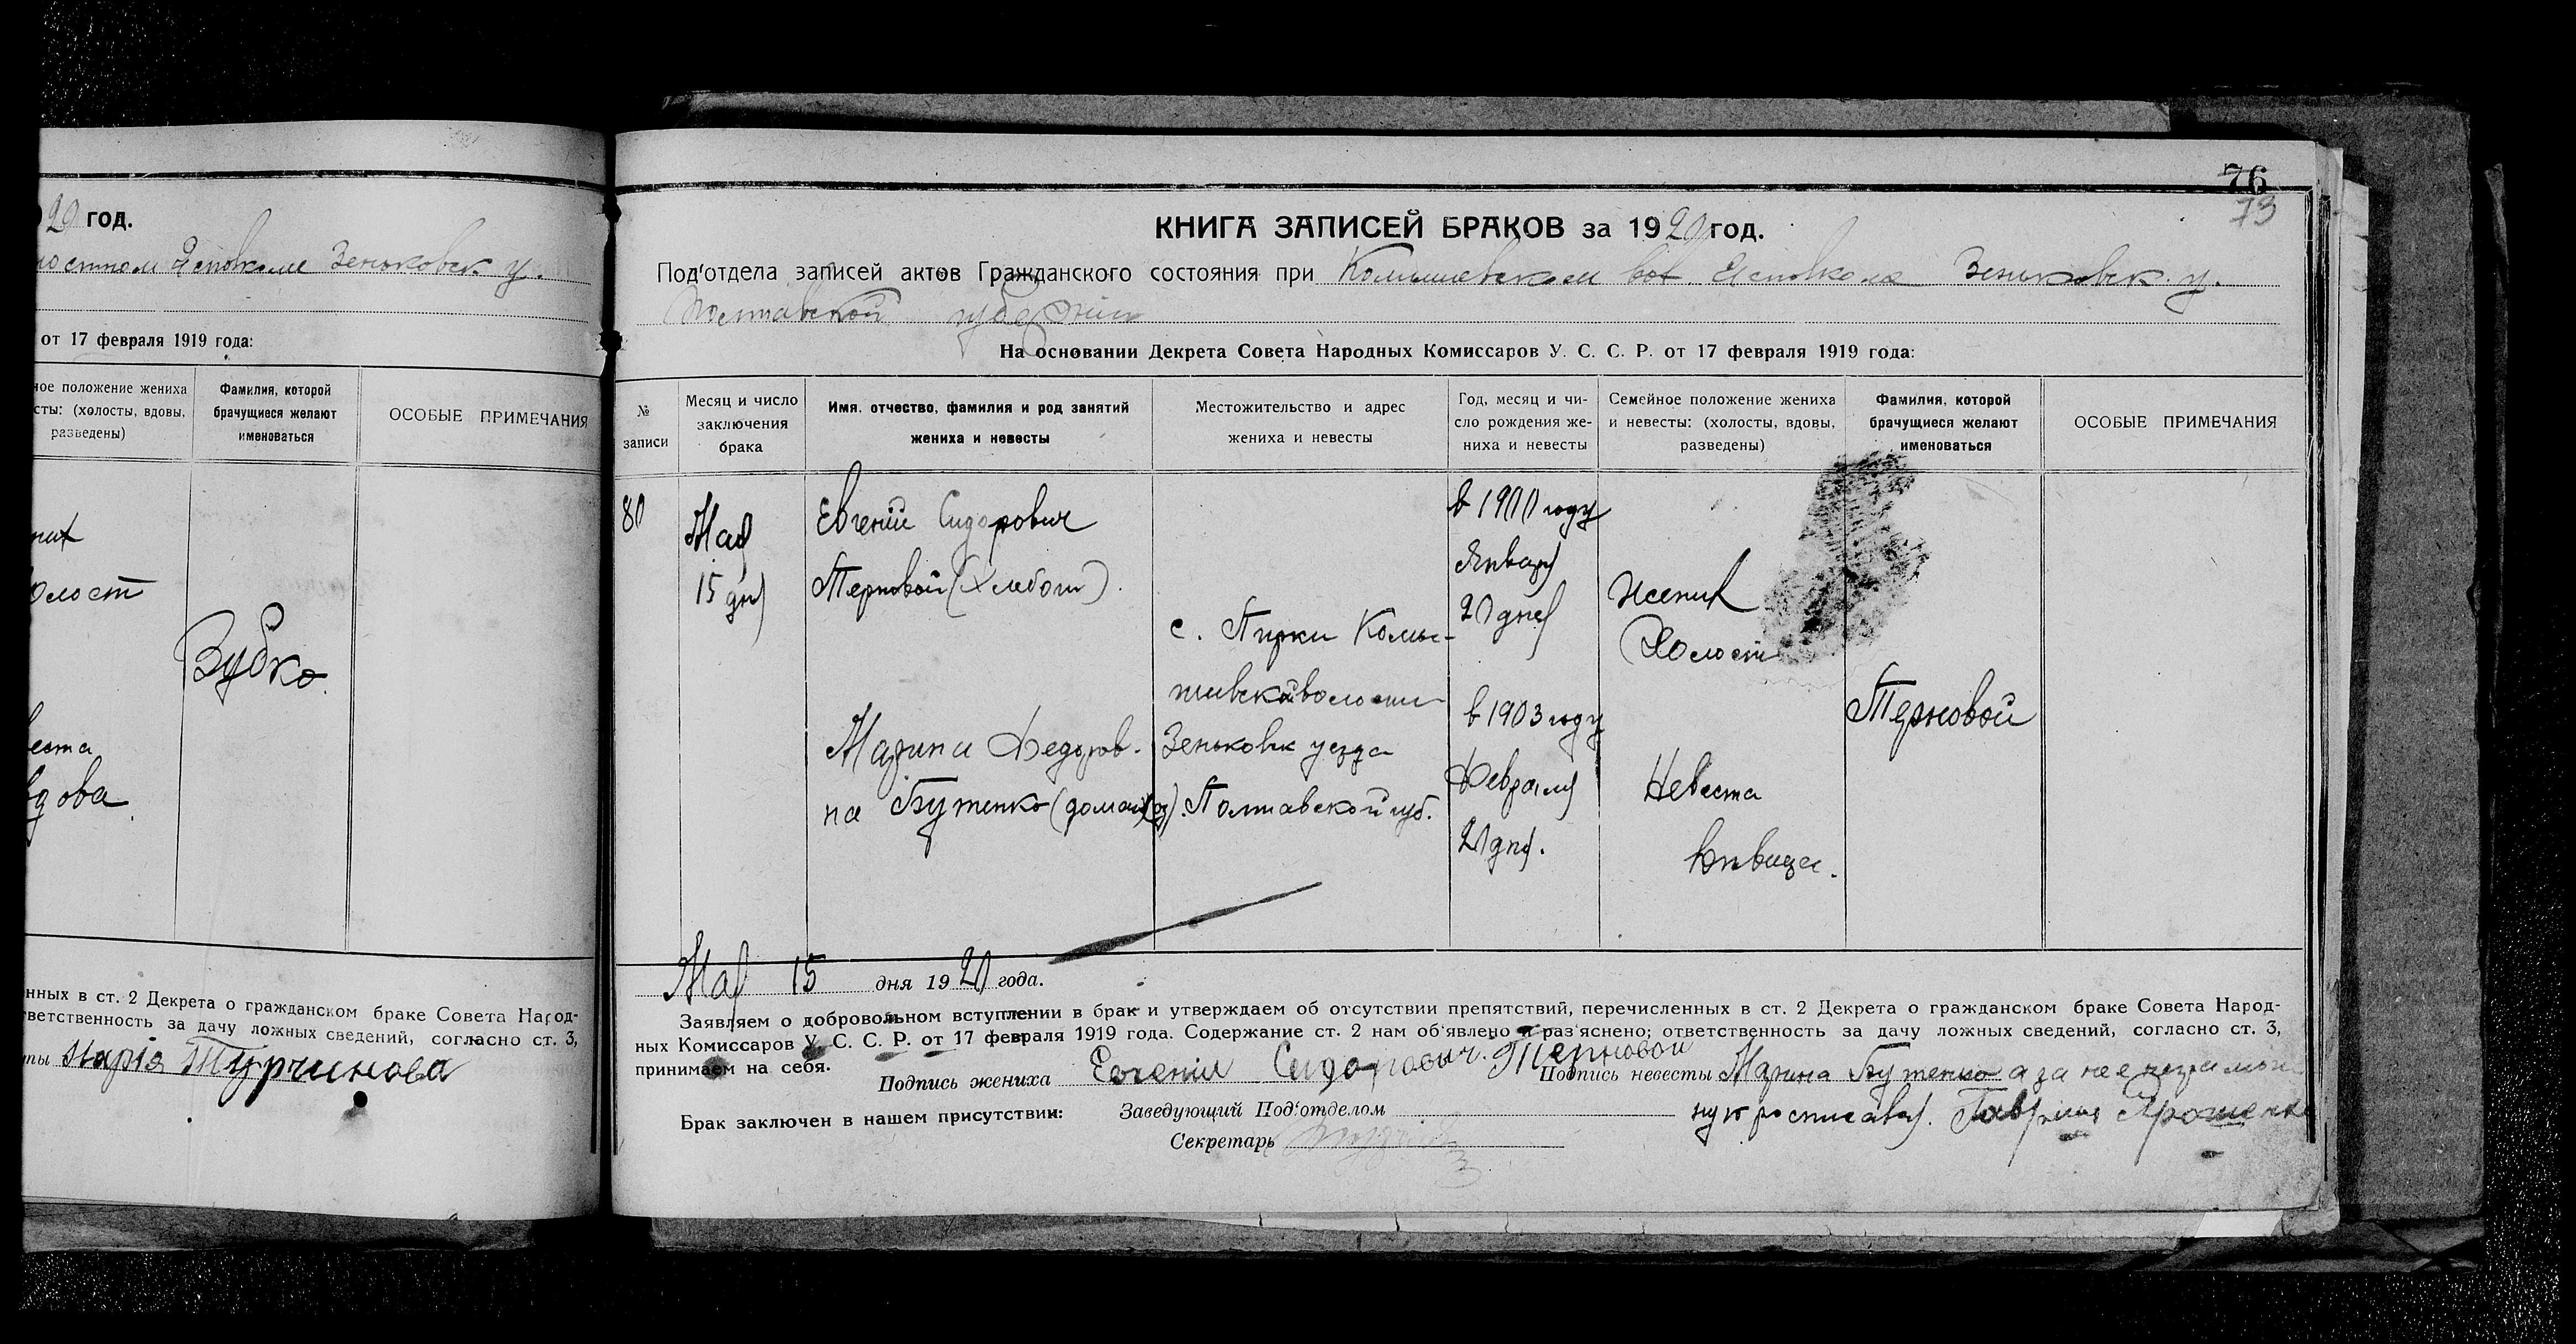 20 год.
Исполкоме Зеньковск. у.
от 17 февраля 1919 года:
ное положение жениха
сты: (холосты, вдовы,
разведены)
Фамилия, которой
брачущиеся желают
именоваться
ОСОБЫЕ ПРИМЕЧАНИЯ
них
олост
Зубко.
веста
вдова.
нных в ст. 2 Декрета о гражданском браке Совета Народ-
тветственность за дачу ложных сведений, согласно ст. 3,
ты Марія Турчинова
76
73
КНИГА ЗАПИСЕЙ БРАКОВ за 1920 год.
Под'отдела записей актов Гражданского состояния при Комышевском вол. Исполкоме Зеньковск. у.
Полтавской губернии
На основании Декрета Совета Народных Комиссаров У. С. С. Р. от 17 февраля 1919 года:
№
записи
Месяц и число
заключения
брака
Имя, отчество, фамилия и род занятий
жениха и невесты
Местожительство и адрес
жениха и невесты
Год, месяц и чи-
сло рождения же-
ниха и невесты
Семейное положение жениха
и невесты: (холосты, вдовы,
разведены)
Фамилия, которой
брачущиеся желают
именоваться
ОСОБЫЕ ПРИМЕЧАНИЯ
80
Мая
15 дня
Евгений Сидорович
Терновой (хлебоп).
Марина Федоров-
на Бутенко (домаш.
с. Пирки Комы-
шивской волости
Зеньковск уезда
Полтавской губ.
в 1900 году
Января
20 дня
в 1903 году
Февраля
20 дня.
Жених
Холост
Невеста
Терновой
Мая 15 дня 1920 года.
Заявляем о добровольном вступлении в брак и утверждаем об отсутствии препятствий, перечисленных в ст. 2 Декрета о гражданском браке Совета Народ-
ных Комиссаров У. С. С. Р. от 17 февраля 1919 года. Содержание ст. 2 нам об'явлено и раз'яснено; ответственность за дачу ложных сведений, согласно ст. 3,
принимаем на себя.
Подпись жениха Евгений Сидорович Терновой
Подпись невесты Марина Бутенко а за нее неграмот
ную росписався. Гавриил Ярошенко
Брак заключен в нашем присутствии:
Заведующий Под'отделом
Секретарь